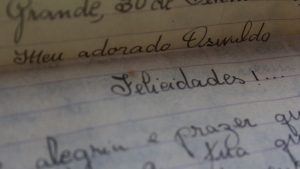 Grande, 30 de
Meu adorado Oswaldo
Felicidades!...
alegria e prazer que
tua